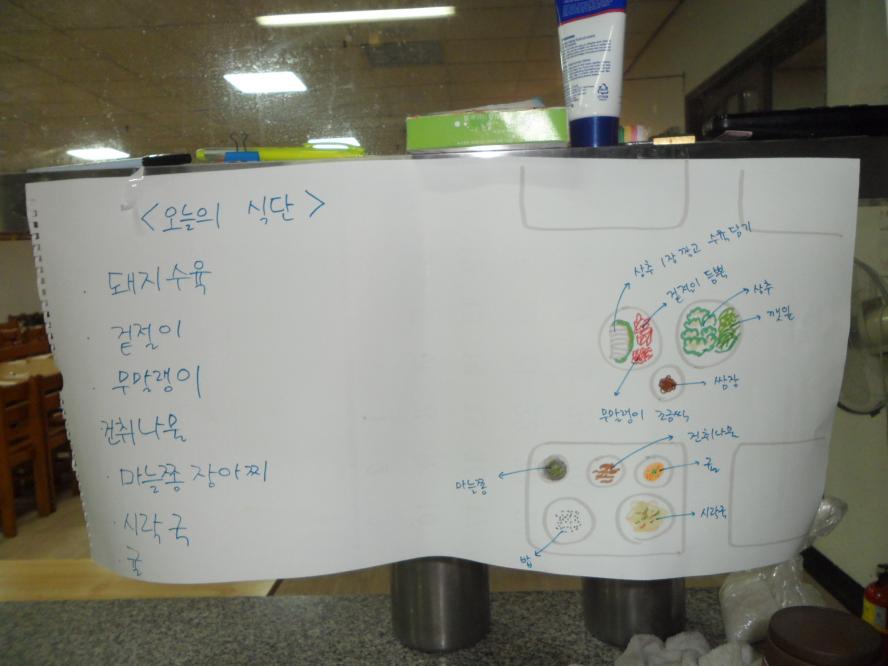 <오늘의 식단>
· 돼지수육
· 겉절이
· 무말랭이
건취나물
· 마늘쫑 장아찌
· 시락국
· 귤
상추 1장 깔고 수육담기
겉절이 듬뿍
상추
깻잎
쌈장
무말랭이 조금씩
건취나물
마늘쫑
귤
시락국
밥